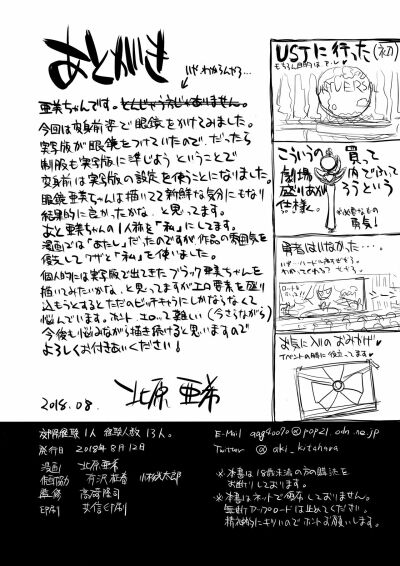 あとがき
亜美ちゃんです。
今回は変身前姿で眼鏡をかけてみました。
実写版が眼鏡をつけていたので、だったら
制服も実写版に準じようということで
変身前は実写版の設定を使うことになりました。
眼鏡亜美ちゃんは描いてて新鮮な気分にもなり
結果的に良かったかな、と思ってます。
あと亜美ちゃんの1人称を「私」にしてます。
漫画では「あたし」だったのですが、作品の雰囲気を
優先してワザと「私」を使いました。
個人的には実写版で出てきたブラック亜美ちゃんを
描いてみたいかな、と思ってますがエロ要素を盛り
込もうとするとただのビッチキャラにしかならなくて
悩んでいます。ホント、エロって難しい(今さらながら)
今後も悩みながら描き続けると思いますので
よろしくお付きあいください!
2018.08. 北原亜希
USJに行った(初)
こういうの買って
劇場内でふって
盛りあがろうという
仕様。
勇者はいなかった…。
お気に入りのおみやげ♥
イベントの際に役立ってます♥
経験人数13人。
発行日 2018年8月12日
漫画 北原亜希
E-Mail
Twitter @aki_kitahara
※本書は18歳未満の方の購読を
お断りしております。
※本書はネットで配布しておりません。
無断アップロードは止めてください。
精神的にキツいのでホントお願いします。